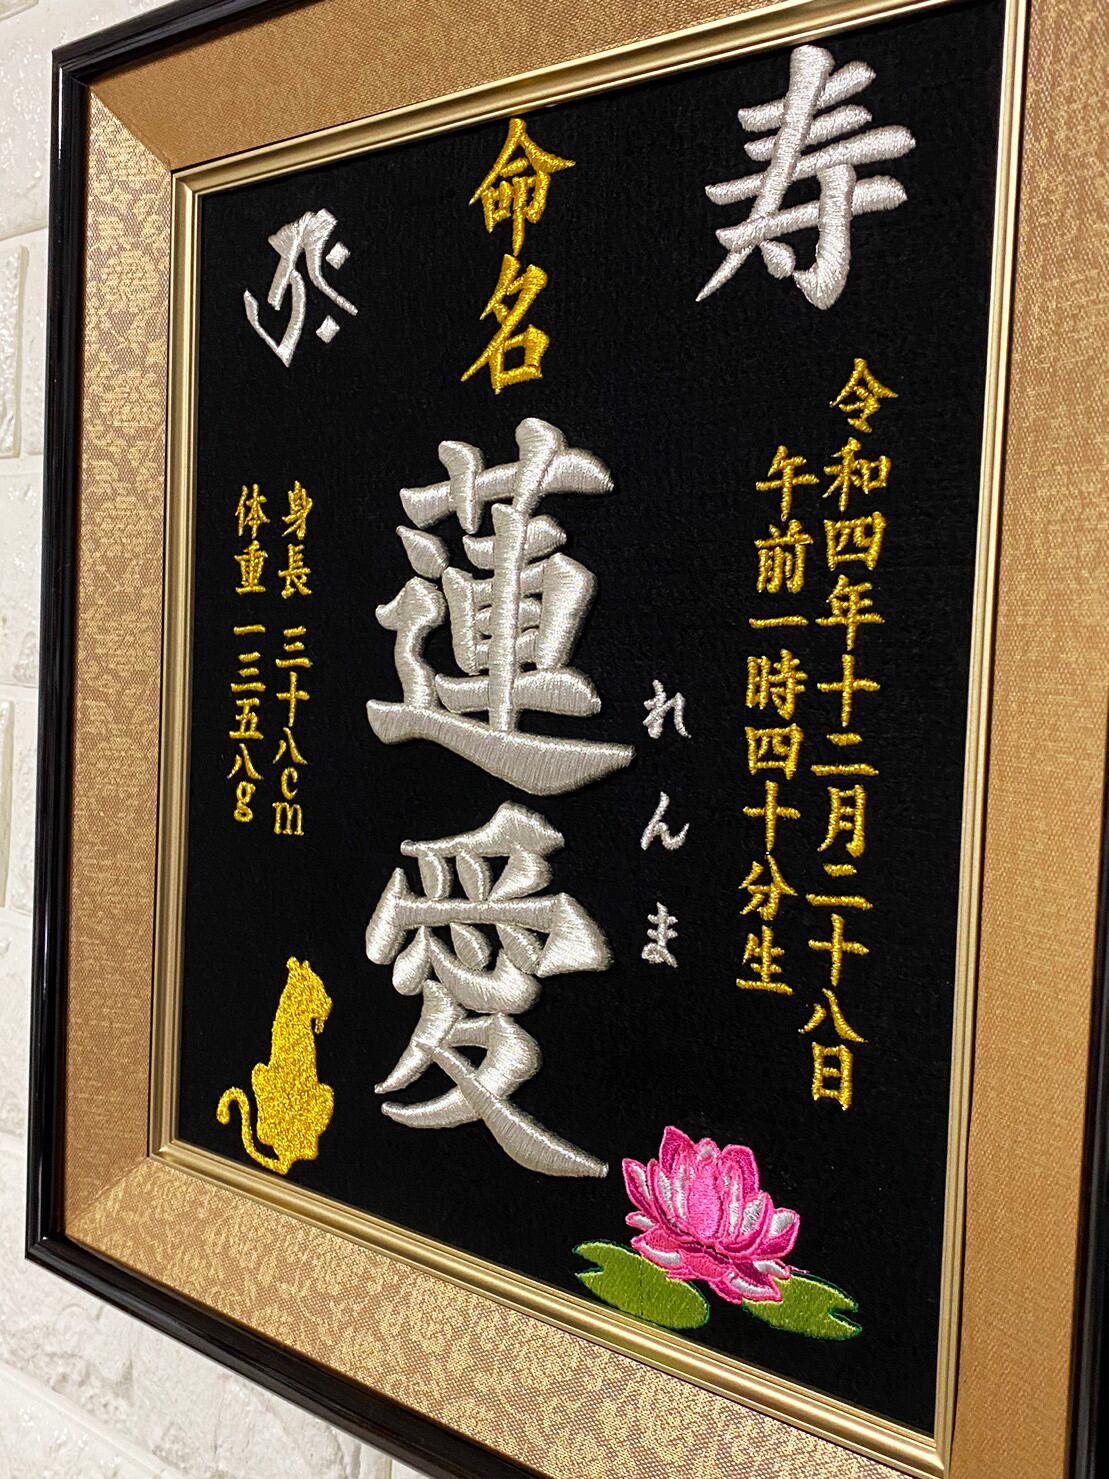 寿
令和四年十二月二十八日
午前一時四十分生
命名
蓮愛
れんま
身長 三十八cm
体重 一三五八g